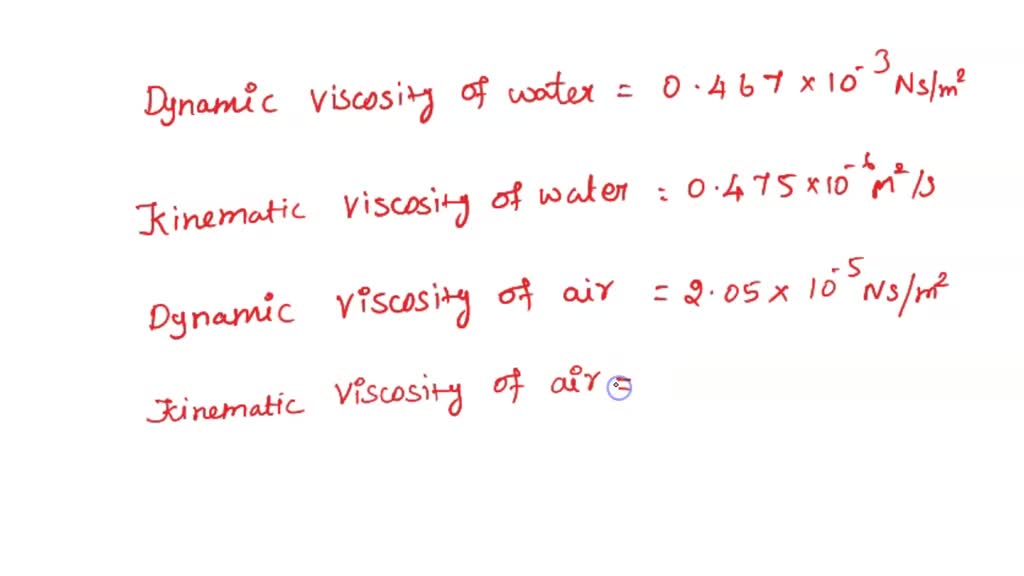 Dynamic viscosity of water = 0.467 × 10⁻³ Ns/m²
Kinematic viscosity of water = 0.475 × 10⁻⁶ m²/s
Dynamic viscosity of air = 2.05 × 10⁻⁵ Ns/m²
Kinematic viscosity of air =